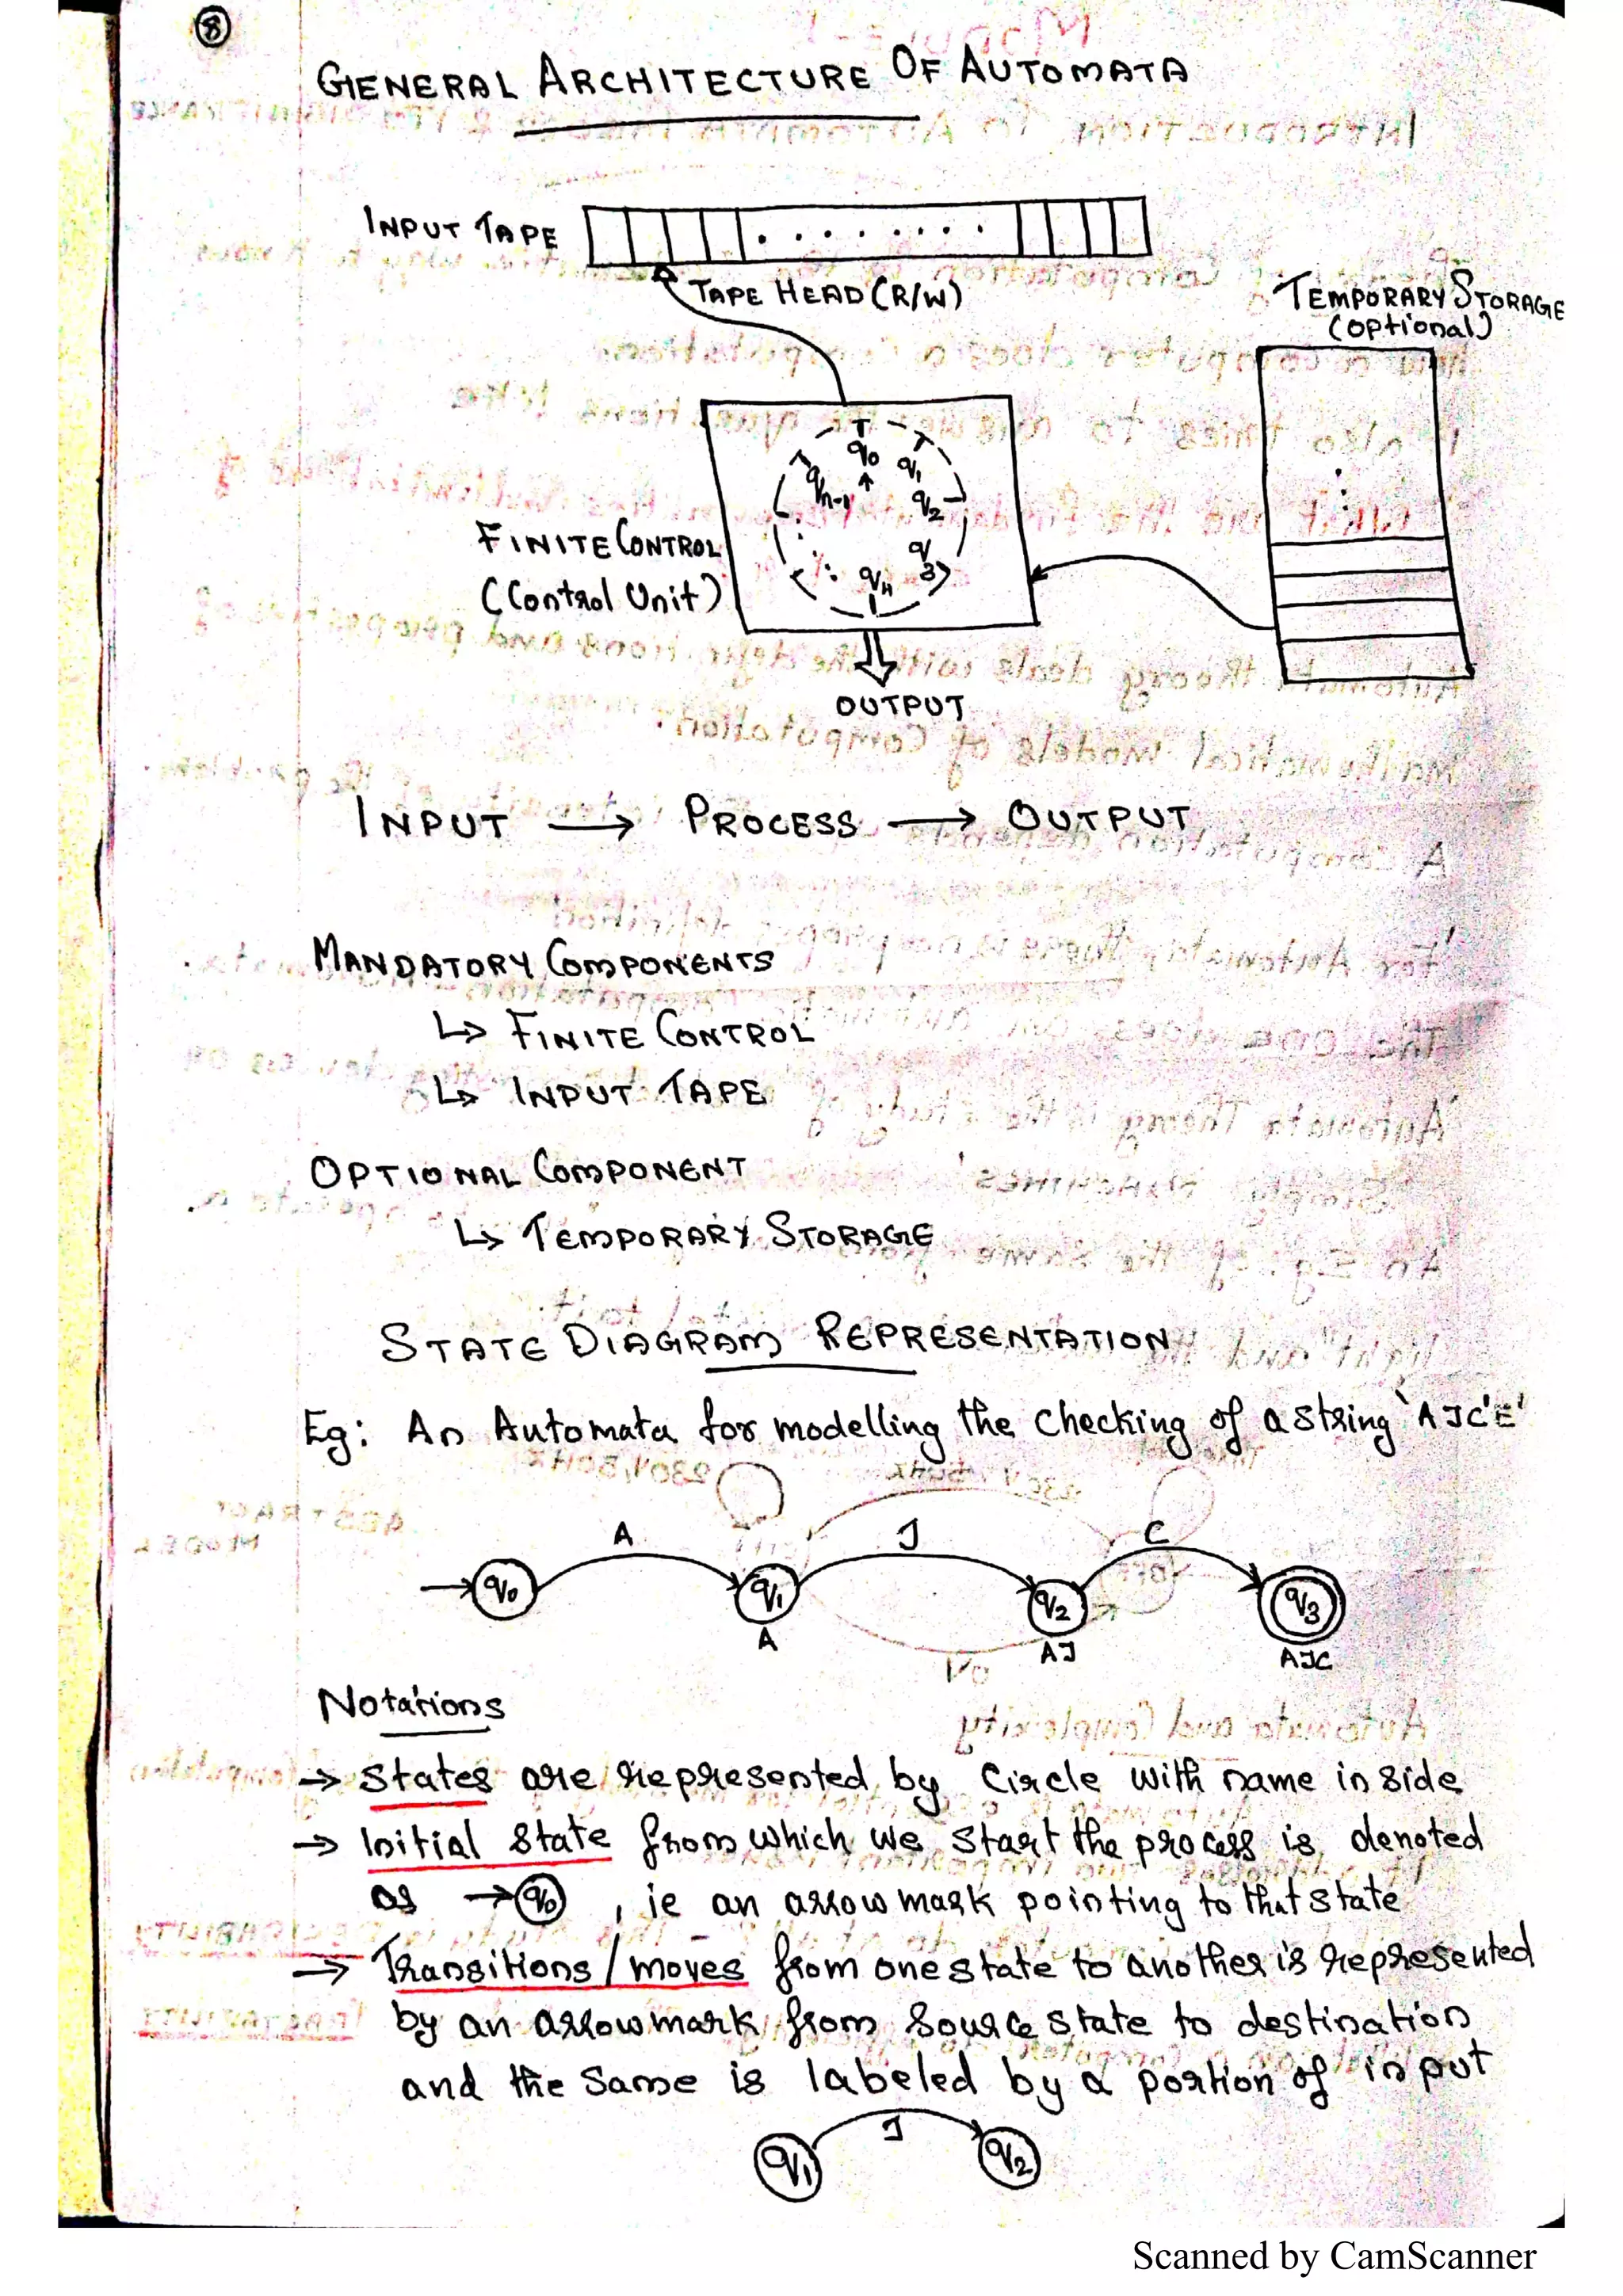 8
GENERAL ARCHITECTURE OF AUTOMATA
INPUT TAPE
TAPE HEAD (R/W)
TEMPORARY STORAGE
(optional)
q0
q1
qn-1
q2
q3
q4
FINITE CONTROL
(Control Unit)
OUTPUT
INPUT → PROCESS → OUTPUT
MANDATORY COMPONENTS
↳ FINITE CONTROL
↳ INPUT TAPE
OPTIONAL COMPONENT
↳ TEMPORARY STORAGE
STATE DIAGRAM REPRESENTATION
Eg: An Automata for modelling the checking of a string 'AJC'E'
A J C
→ q0 q1 q2 q3
A AJ AJC
Notations
→ States are represented by Circle with name inside
→ Initial State from which we start the process is denoted
as → q0 , ie an arrow mark pointing to that state
→ Transitions / moves from one state to another is represented
by an arrow mark from source state to destination
and the same is labeled by a portion of input
J
q1 q2
Scanned by CamScanner